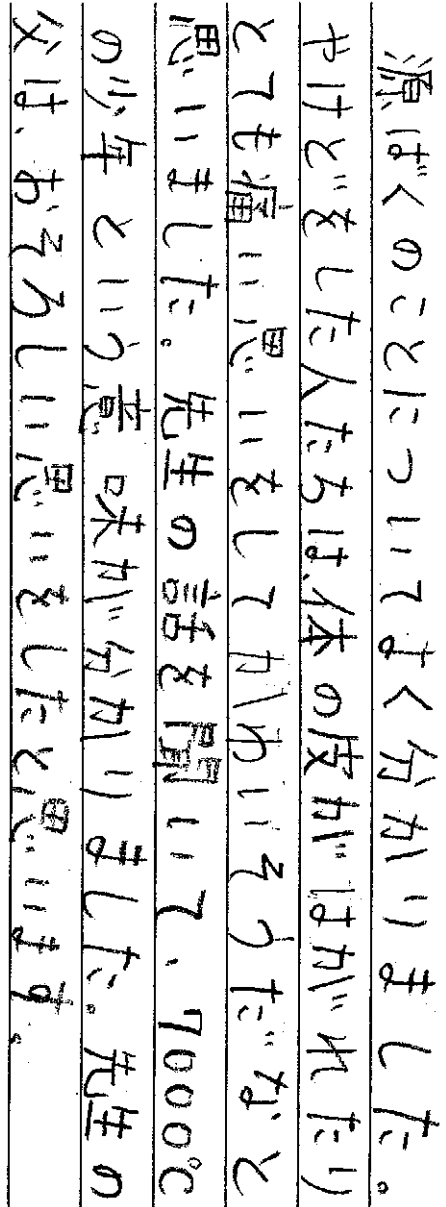 源ばくのことについてよく分かりました。
やけどをした人たちは、体の皮がはがれたり
とても痛い思いをしてかわいそうだなと
思いました。先生の話を聞いて、7000℃
の少年という意味が分かりました。先生の
父は、おそろしい思いをしたと思います。